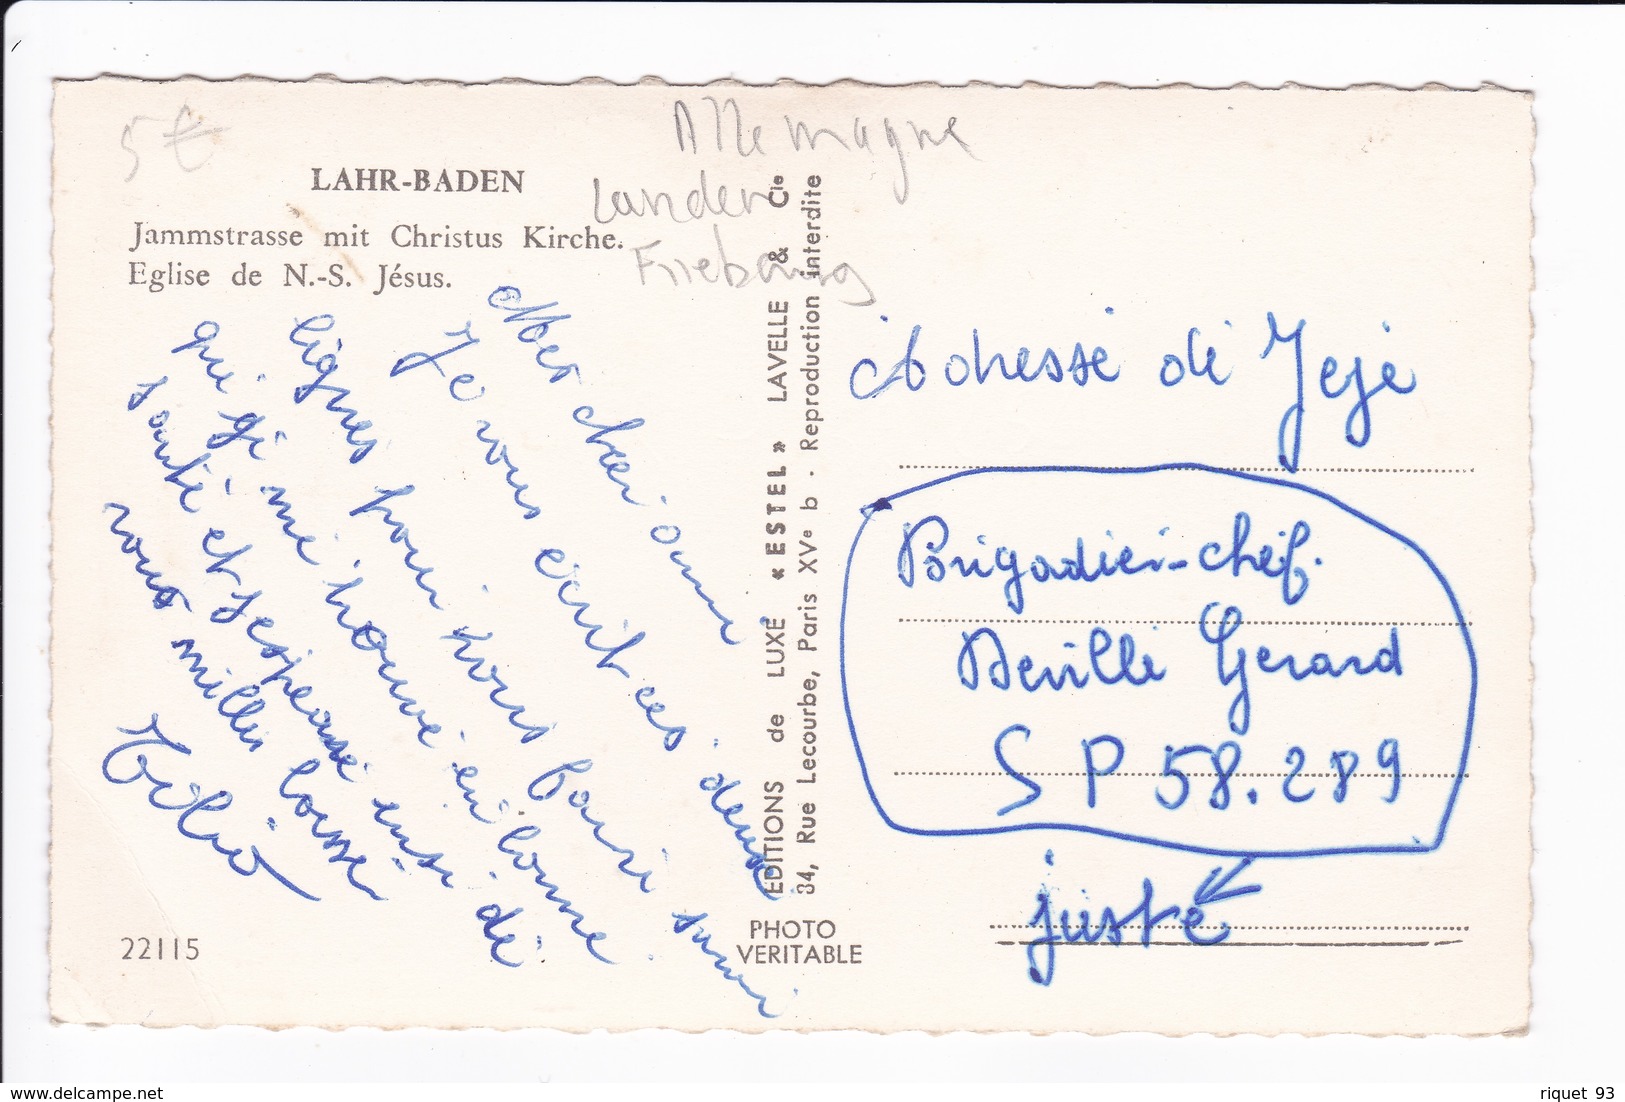 5 €
Allemagne
Landen
Friebourg
LAHR-BADEN
Jammstrasse mit Christus Kirche.
Eglise de N.-S. Jésus.
Mes cheri ami
Je vous ecrit ces deux
lignes pour vous fairi savoir
qui gi mi trouve en bonne
santé et j'espere ensi de
vous milles
EDITIONS de LUXE « ESTEL » LAVELLE & Cie
34, Rue Lecourbe, Paris XVe b - Reproduction interdite
PHOTO
VERITABLE
22115
Adresse de Jejé
Brigadier-chef.
Deville Gerard
S P 58.289
juste
riquet 93